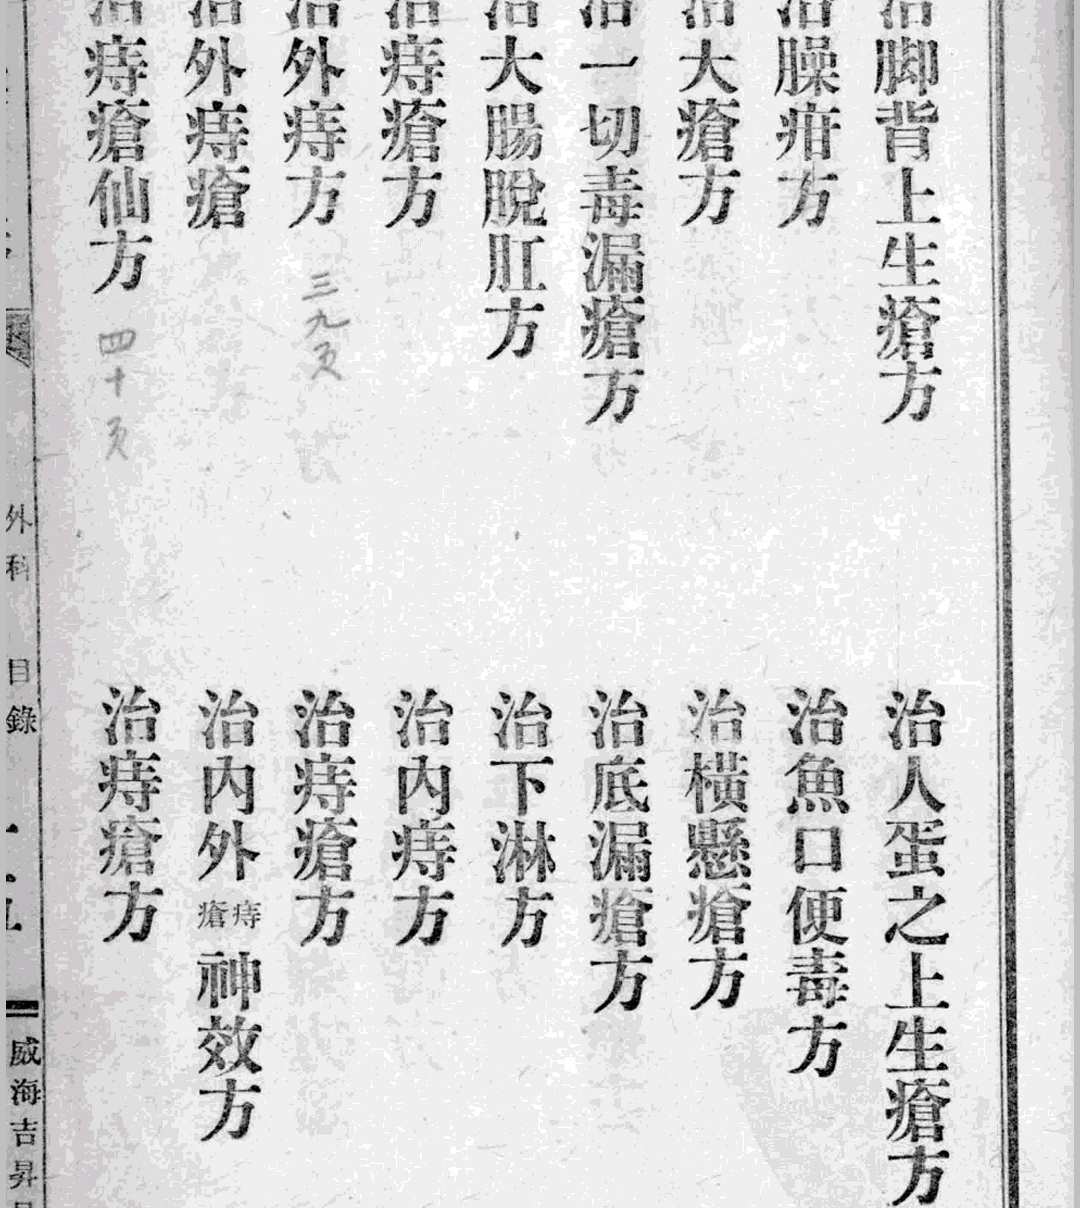 治脚背上生瘡方
治人蛋之上生瘡方
治臊疳方
治魚口便毒方
治大瘡方
治橫懸瘡方
治一切毒漏瘡方
治底漏瘡方
治大腸脫肛方
治下淋方
治痔瘡方
治內痔方
治外痔方 三九页
治痔瘡方
治外痔瘡
治內外痔瘡神效方
治痔瘡仙方 四十页
治痔瘡方
外科 目錄
威海吉昇